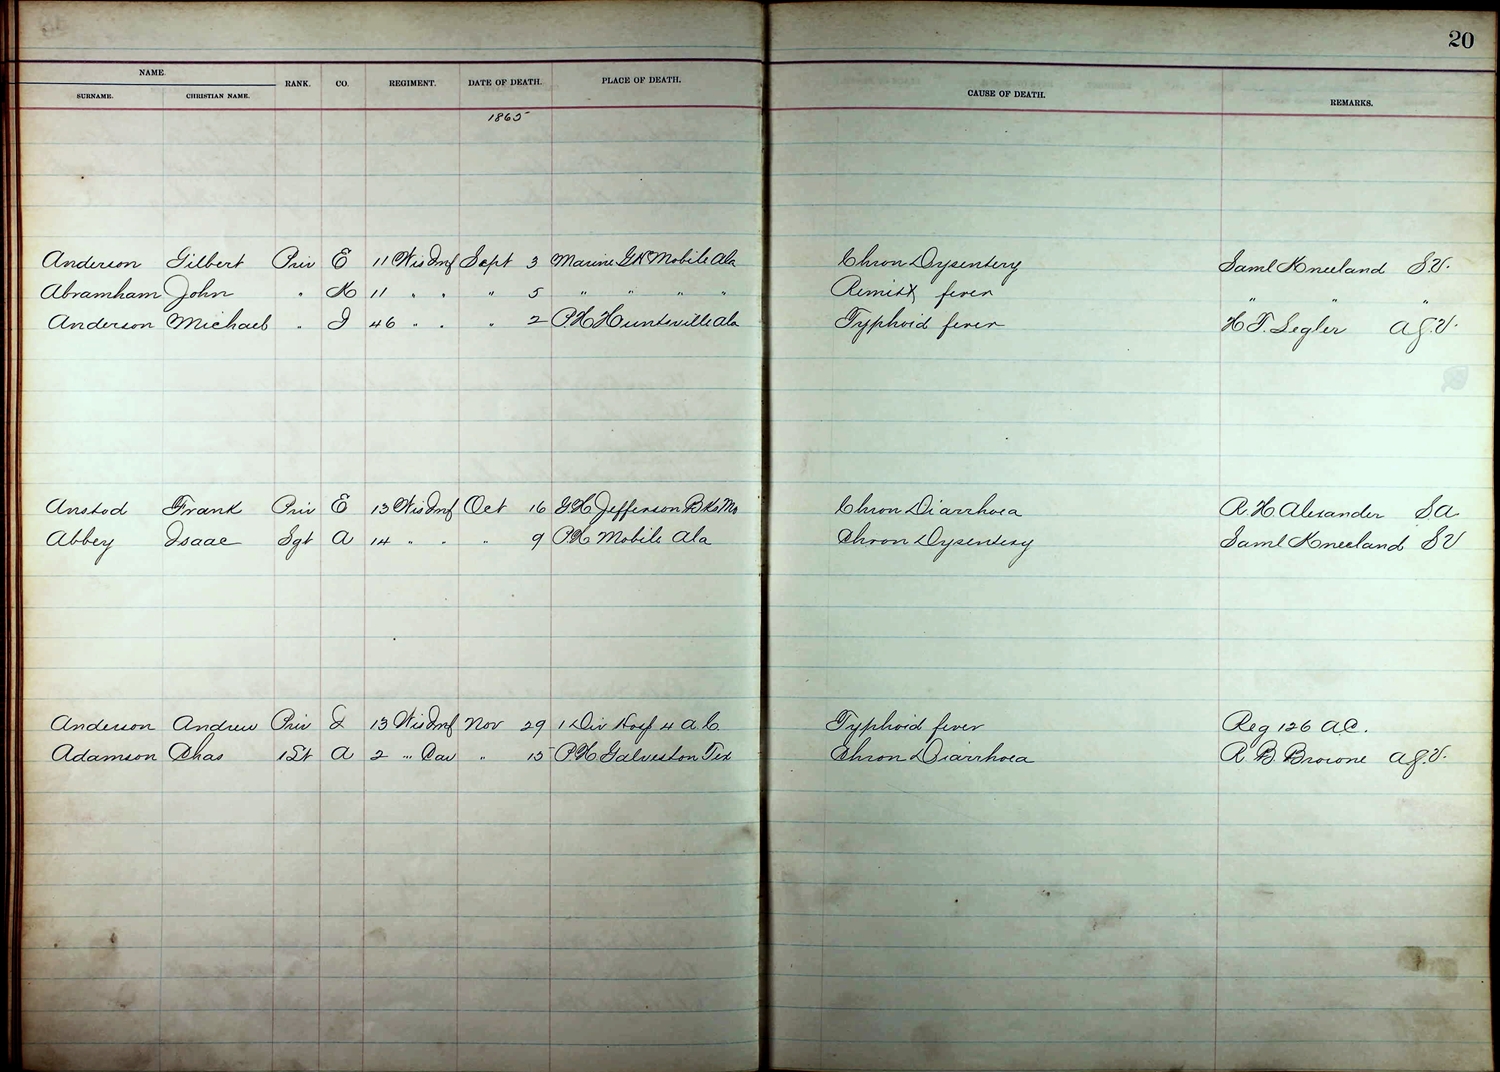 20
NAME. RANK. CO. REGIMENT. DATE OF DEATH. PLACE OF DEATH. CAUSE OF DEATH. REMARKS.
SURNAME. CHRISTIAN NAME.
1865
Anderson Gilbert Priv E 11 Wis Inf Sept 3 Marine G H Mobile Ala Chron Dysentery Saml Kneeland S.V.
Abramham John " K 11 " " " 5 " " " " Remitt fever " " "
Anderson Michael " I 46 " " " 2 P.H Huntsville Ala Typhoid fever H F. Segler A S.V.
Anstod Frank Priv E 13 Wis Inf Oct 16 G H Jefferson Bks Mo Chron Diarrhoea R. H Alexander S A
Abbey Isaac Sgt A 14 " " " 9 P H Mobile Ala Chron Dysentery Saml Kneeland S V
Anderson Andrew Priv I 13 Wis Inf Nov 29 1 Div Hosp 4 A. C. Typhoid fever Reg 126 A C.
Adamson Chas 1 St A 2 " Cav " 15 P H Galveston Tex Chron Diarrhoea R. B. Browne A S.V.